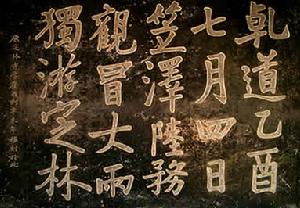 乹道乙酉
七月四日
笠澤陸務
觀冒大雨
獨游定林